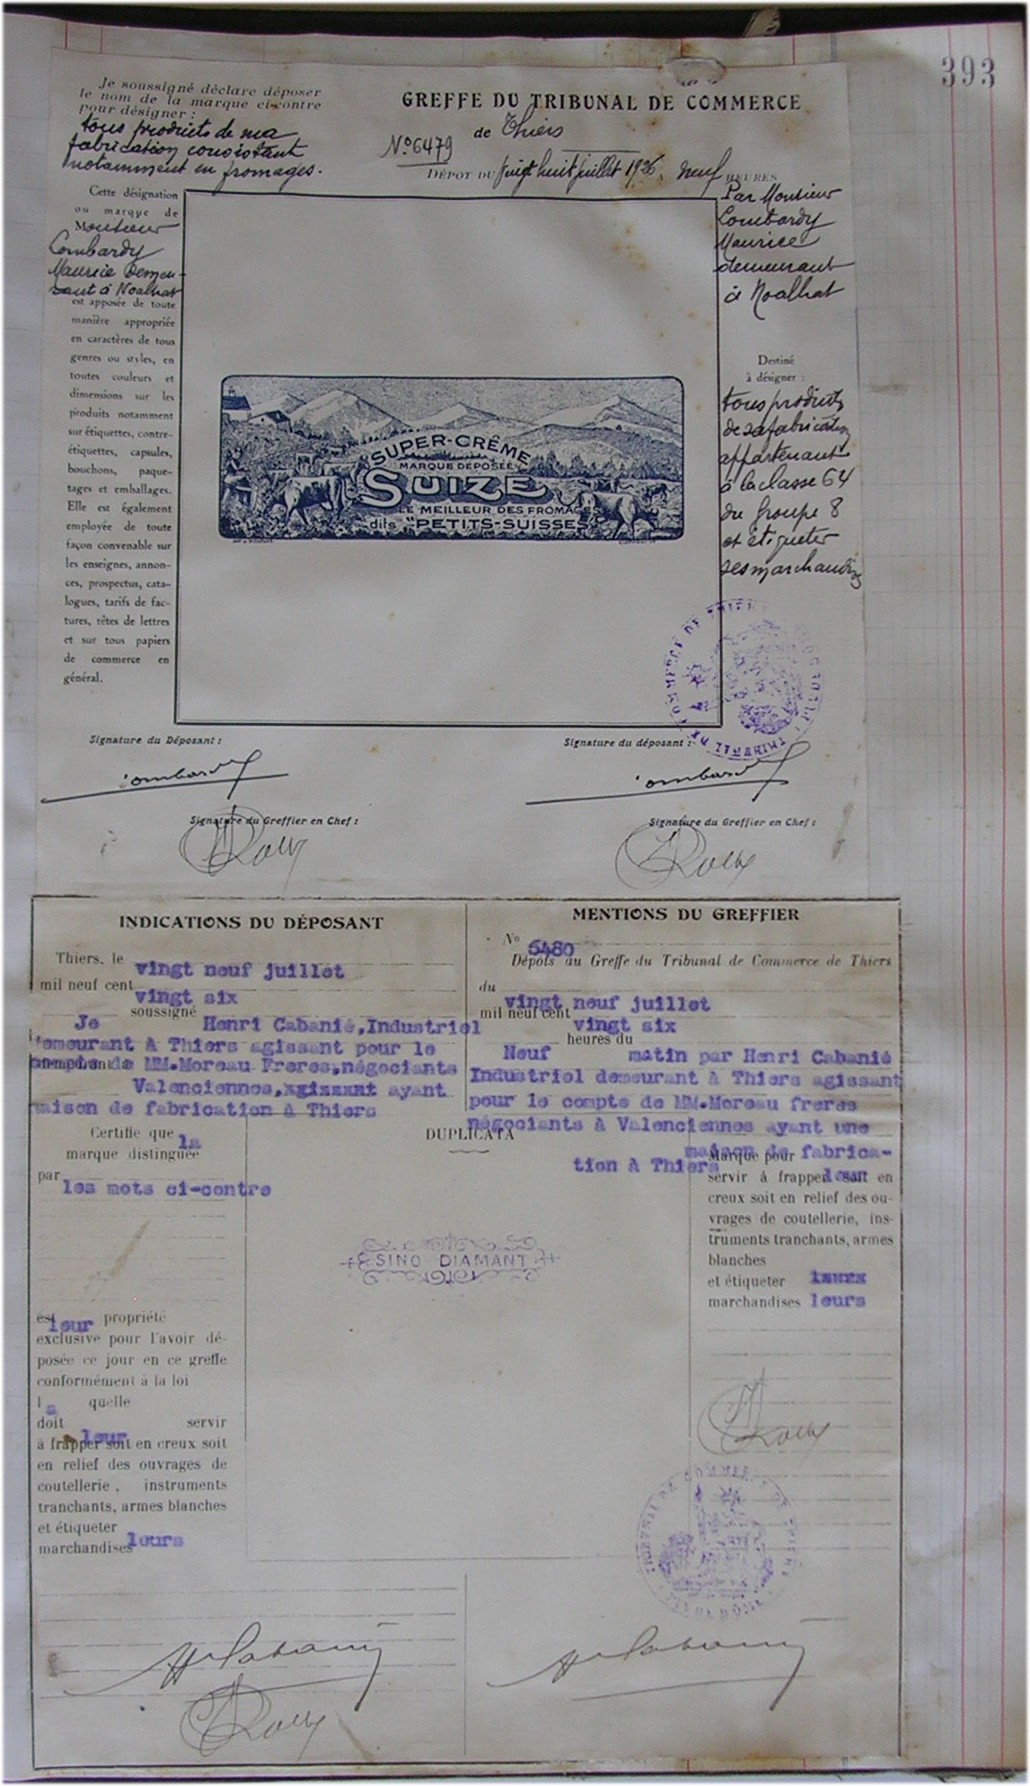 393
Je soussigné déclare déposer
le nom de la marque ci-contre
pour désigner :
tous produits de ma
fabrication consistant
notamment en fromages.
GREFFE DU TRIBUNAL DE COMMERCE
de Thiers
N° 6479
DÉPOT DU vingt huit juillet 1926. neuf HEURES
Cette désignation
ou marque de
Monsieur
Lombardy
Maurice Demeu-
rant à Noalhat
est apposée de toute
manière appropriée
en caractères de tous
genres ou styles, en
toutes couleurs et
dimensions sur les
produits notamment
sur étiquettes, contre-
étiquettes, capsules,
bouchons, paque-
tages et emballages.
Elle est également
employée de toute
façon convenable sur
les enseignes, annon-
ces, prospectus, cata-
logues, tarifs de fac-
tures, têtes de lettres
et sur tous papiers
de commerce en
général.
SUPER-CRÊME
MARQUE DÉPOSÉE
SUIZE
LE MEILLEUR DES FROMAGES
dits "PETITS-SUISSES"
Par Monsieur
Lombardy
Maurice
demeurant
à Noalhat
Destiné
à désigner :
tous produits
de sa fabrication
appartenant
à la classe 64
du groupe 8
et étiqueter
ses marchandises
TRIBUNAL DE COMMERCE DE THIERS
Signature du Déposant :
Lombardy
Signature du déposant :
Lombardy
Signature du Greffier en Chef :
Roux
Signature du Greffier en Chef :
Roux
INDICATIONS DU DÉPOSANT
Thiers, le vingt neuf juillet
mil neuf cent vingt six
Je soussigné Henri Cabanié, Industriel
demeurant à Thiers agissant pour le
compte de MM. Moreau Freres, négociants
Valenciennes, ayant
maison de fabrication à Thiers
Certifie que la
marque distinguée
par les mots ci-contre
est leur propriété
exclusive pour l'avoir dé-
posée ce jour en ce greffe
conformément à la loi
la quelle
doit servir
à leur
frapper soit en creux soit
en relief des ouvrages de
coutellerie, instruments
tranchants, armes blanches
et étiqueter
marchandises leurs
MENTIONS DU GREFFIER
N° 6480
Dépôts au Greffe du Tribunal de Commerce de Thiers
du vingt neuf juillet
mil neuf cent vingt six
heures du
Neuf matin par Henri Cabanié
Industriel demeurant à Thiers agissant
pour le compte de MM. Moreau freres
négociants à Valenciennes ayant une
maison de fabrica-
tion à Thiers
DUPLICATA
SINO DIAMANT
Marque pour
servir à frapper soit en
creux soit en relief des ou-
vrages de coutellerie, ins-
truments tranchants, armes
blanches
et étiqueter
marchandises leurs
Roux
TRIBUNAL DE COMMERCE DE THIERS
PUY DE DÔME
H Cabanié
H Cabanié
Roux